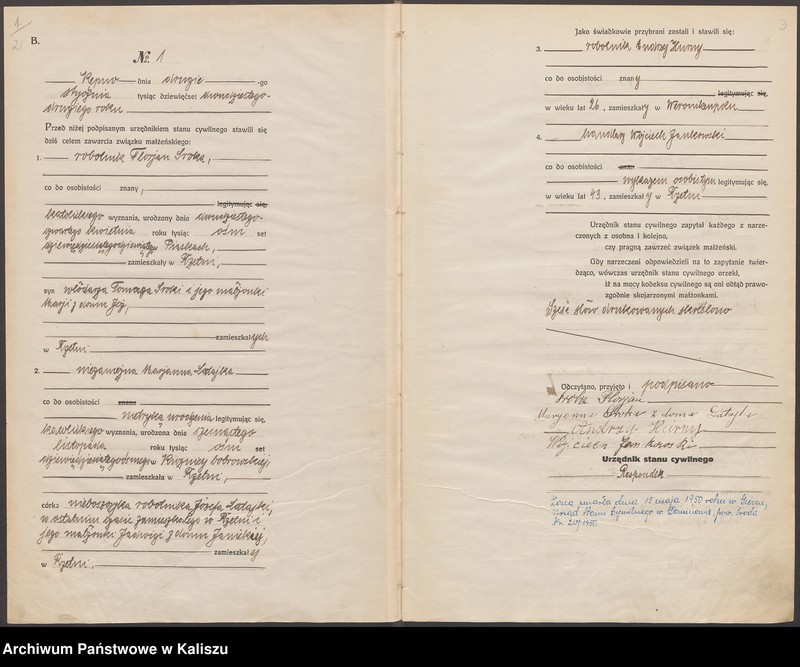 1
2
B.
№ 1
Kępno dnia drugie -go
stycznia tysiąc dziewięćset dwudziestego-
drugiego roku
Przed niżej podpisanym urzędnikiem stanu cywilnego stawili się
dziś celem zawarcia związku małżeńskiego:
1. robotnik Florjan Sroka,
co do osobistości znany,
legitymując się,
katolickiego wyznania, urodzony dnia dwudziestego-
kwietnia roku tysiąc ośm set
dziewięćdziesiątego
zamieszkały w Rzetni,
syn włódarza Tomasza Sroki i jego małżonki
Marji z domu
zamieszkałych
w Rzetni
2. niezamężna Marjanna
co do osobistości znana
metryką urodzenia legitymując się,
katolickiego wyznania, urodzona dnia szóstego
listopada roku tysiąc ośm set
zamieszkała w Rzetni,
córka nieboszczyka robotnika Józefa
w ostatnim czasie zamieszkałego w Rzetni i
jego małżonki Jadwigi z domu
zamieszkałej
w Rzetni.
3
Jako świadkowie przybrani zostali i stawili się:
3. robotnik Andrzej Kurny
co do osobistości znany
legitymując się,
w wieku lat 26, zamieszkały w Weronikopolu
4. handlarz Wojciech Jankowski
co do osobistości znan
wykazem osobistym legitymując się,
w wieku lat 43, zamieszkały w Rzetni
Urzędnik stanu cywilnego zapytał każdego z narze-
czonych z osobna i kolejno,
czy pragną zawrzeć związek małżeński.
Gdy narzeczeni odpowiedzieli na to zapytanie twier-
dząco, wówczas urzędnik stanu cywilnego orzekł,
iż na mocy kodeksu cywilnego są oni odtąd prawo-
zgodnie skojarzonymi małżonkami.
Sześć słów drukowanych skreślono
Odczytano, przyjęto i podpisano
Sroka Florjan
Maryanna Sroka z domu
Andrzej Kurny
Wojciech Jankowski
Urzędnik stanu cywilnego
Respondek
Żona zmarła dnia 15 maja 1950 roku w
Urząd Stanu Cywilnego w pow. Środa
Nr. 20/1950.
Archiwum Państwowe w Kaliszu